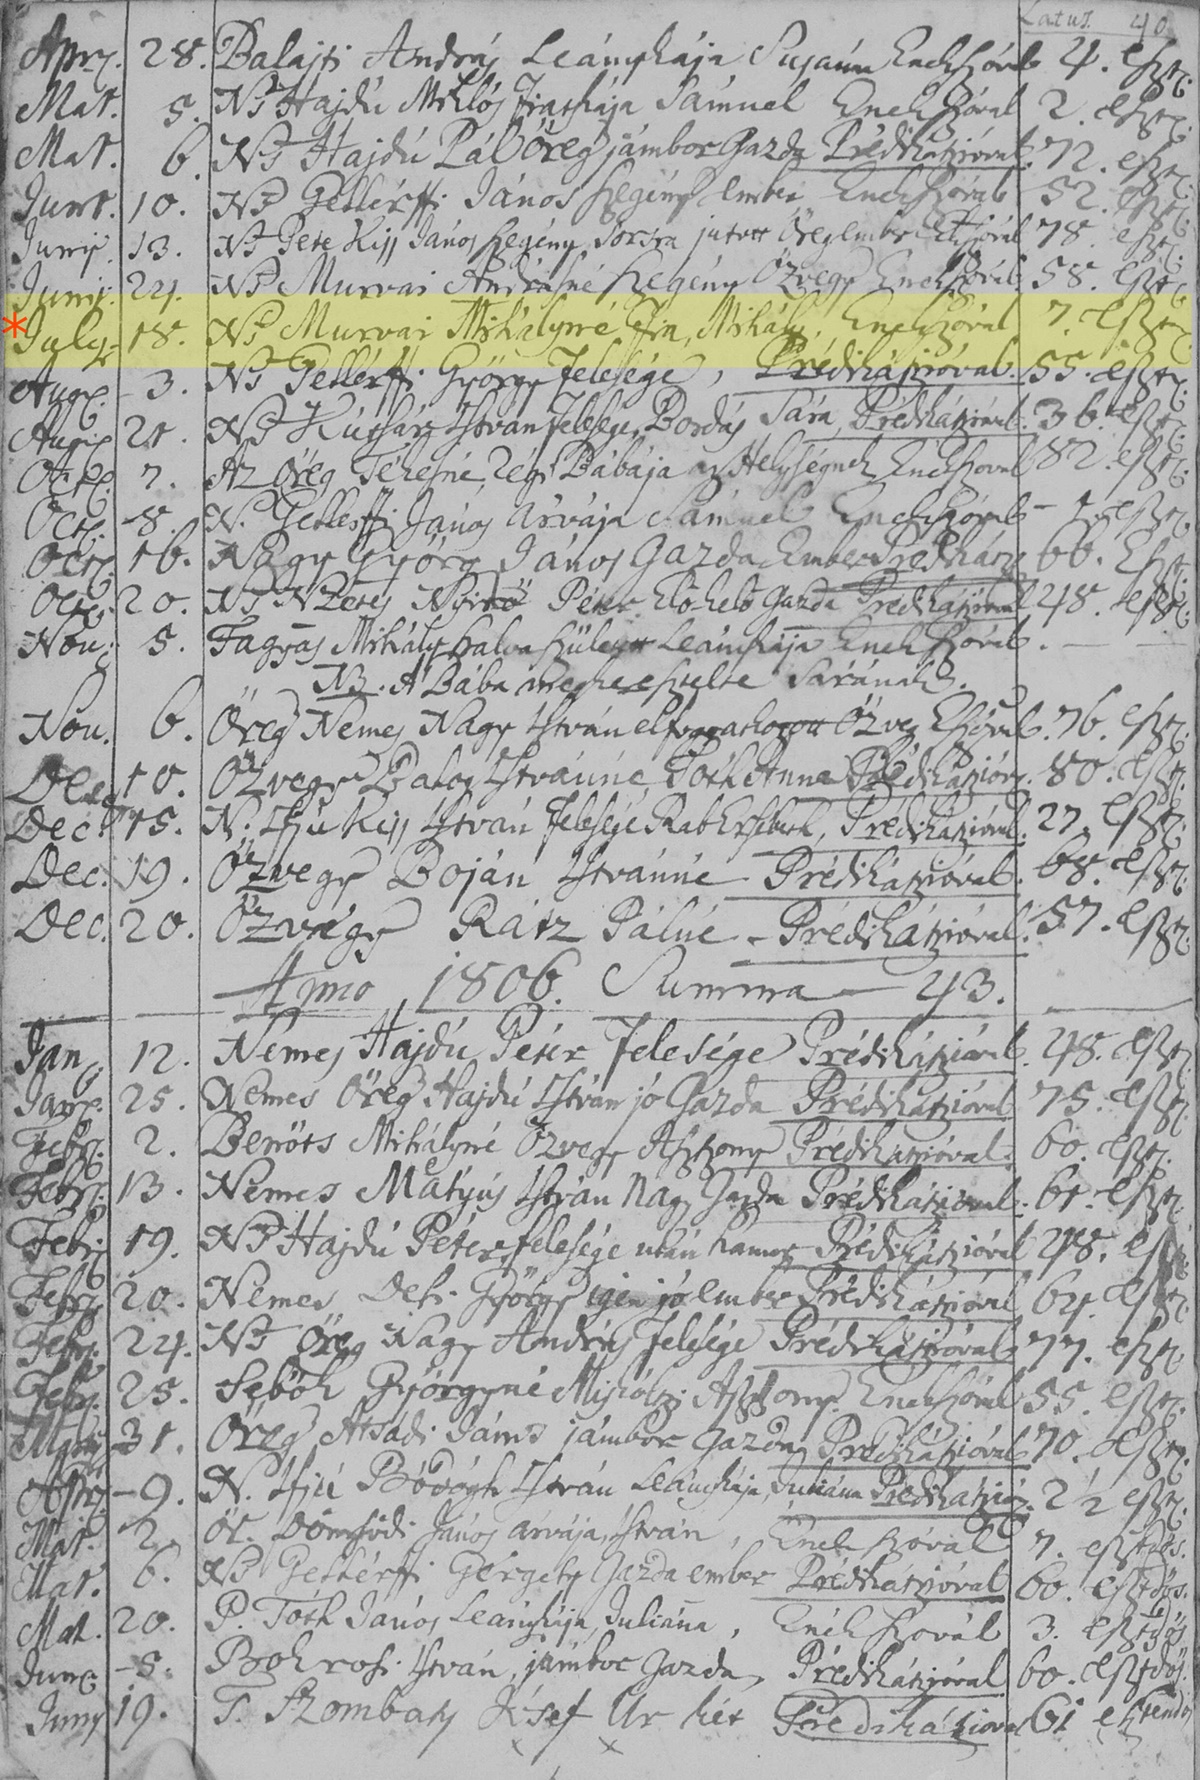 Latus. 40
Apr. 28. Balajti András Leánykája Susánna Énekszóval 4. eszt.
Mai. 5. Ns Hajdú Miklós fiatskája Sámuel Énekszóval 2. eszt.
Mai. 6. Ns Hajdú Pál Öreg jámbor Gazda Prédikátzióval. 72. eszt.
Juni. 10. Ns Gellérffi János Szegény Ember Énekszóval 52. eszt.
Junij. 13. Ns Pete Kiss János Szegény Sorsra jutott Öreg ember Ekszóval 78. eszt.
Junij. 24. Ns Murvai Andrásné Szegény Özvegy Énekszóval. 58. eszt.
July. 18. Ns Murvai Mihályné fia, Mihály, Énekszóval 7. eszt.
Aug. 3. Ns Gellérffi György Felesége, Prédikátzióval. 55. eszt.
Aug. 21. Ns István Felesége Bordás Sára, Prédikátzióval. 36. eszt.
Oct. 7. Az Öreg Régi Bábája az Helységnek Énekszóval 82. eszt.
Oct. 8. N. Gellérffi János Árvája Sámuel Énekszóval - 1. eszt.
Oct. 16. Nagy György János Gazda Ember Prédikátz 66. Eszt.
Oct. 20. Ns Péter Gazda Prédikátzióval 48. eszt.
Nov. 5. Mihály halva Született Leánykája Énekszóval. — —
NB. A Bába megkeresztelte Sárának.
Nov. 6. Öreg Nemes Nagy István Özvegy Ekszóval. 76. eszt.
Dec. 10. Özvegy Balog Istvánné, Tóth Anna Prédikátzióv. 80. eszt.
Dec. 15. N. Ifjú Kiss István Felesége Rab Ersébeth, Prédikátzióval. 27. eszt.
Dec. 19. Özvegy Boján Istvánné Prédikátzióval. 68. eszt.
Dec. 20. Özvegy Rátz Pálné - Prédikátzióval. 57. eszt.
Anno 1806. Summa — 43.
Jan. 12. Nemes Hajdú Péter Felesége Prédikátzióval. 48. eszt.
Jan. 25. Nemes Öreg Hajdú István jó Gazda Prédikátzióval 75. eszt.
Febr. 2. Mihályné Özvegy Aszszony Prédikátzióval. 60. eszt.
Febr. 13. Nemes Mátyus István Nagy Gazda Prédikátzióval. 61. eszt.
Febr. 19. Ns Hajdú Péter felesége után hamar Prédikátzióval 48. eszt.
Febr. 20. Nemes György igen jó ember Prédikátzióval 64. eszt.
Febr. 24. Ns Öreg Nagy András felesége Prédikátzióval. 77. eszt.
Febr. 25. Sebők Györgyné Miskoltzi Aszszony Énekszóval 55. eszt.
31. Öreg Atsádi János jámbor Gazda Prédikátzióval 70. eszt.
Apr. - 9. N. Ifjú István Leánykája, Juliána Prédikátzióv. 2 1/2 eszt.
Mai. 2. Dömsödi János árvája, István, Ének szóval 7. esztdős.
Mai. 6. Ns Gellérffi Gergely Gazda ember Prédikátzióval 60. esztdős.
Mai. 20. P. Tóth János Leánykája, Juliána, Ének szovál 3. esztdős
Juni. - 5. István, jámbor Gazda, Prédikátzióval 60. esztdős.
Juny 19. T. Szombaty Ur Prédikátzióval 61 esztendős